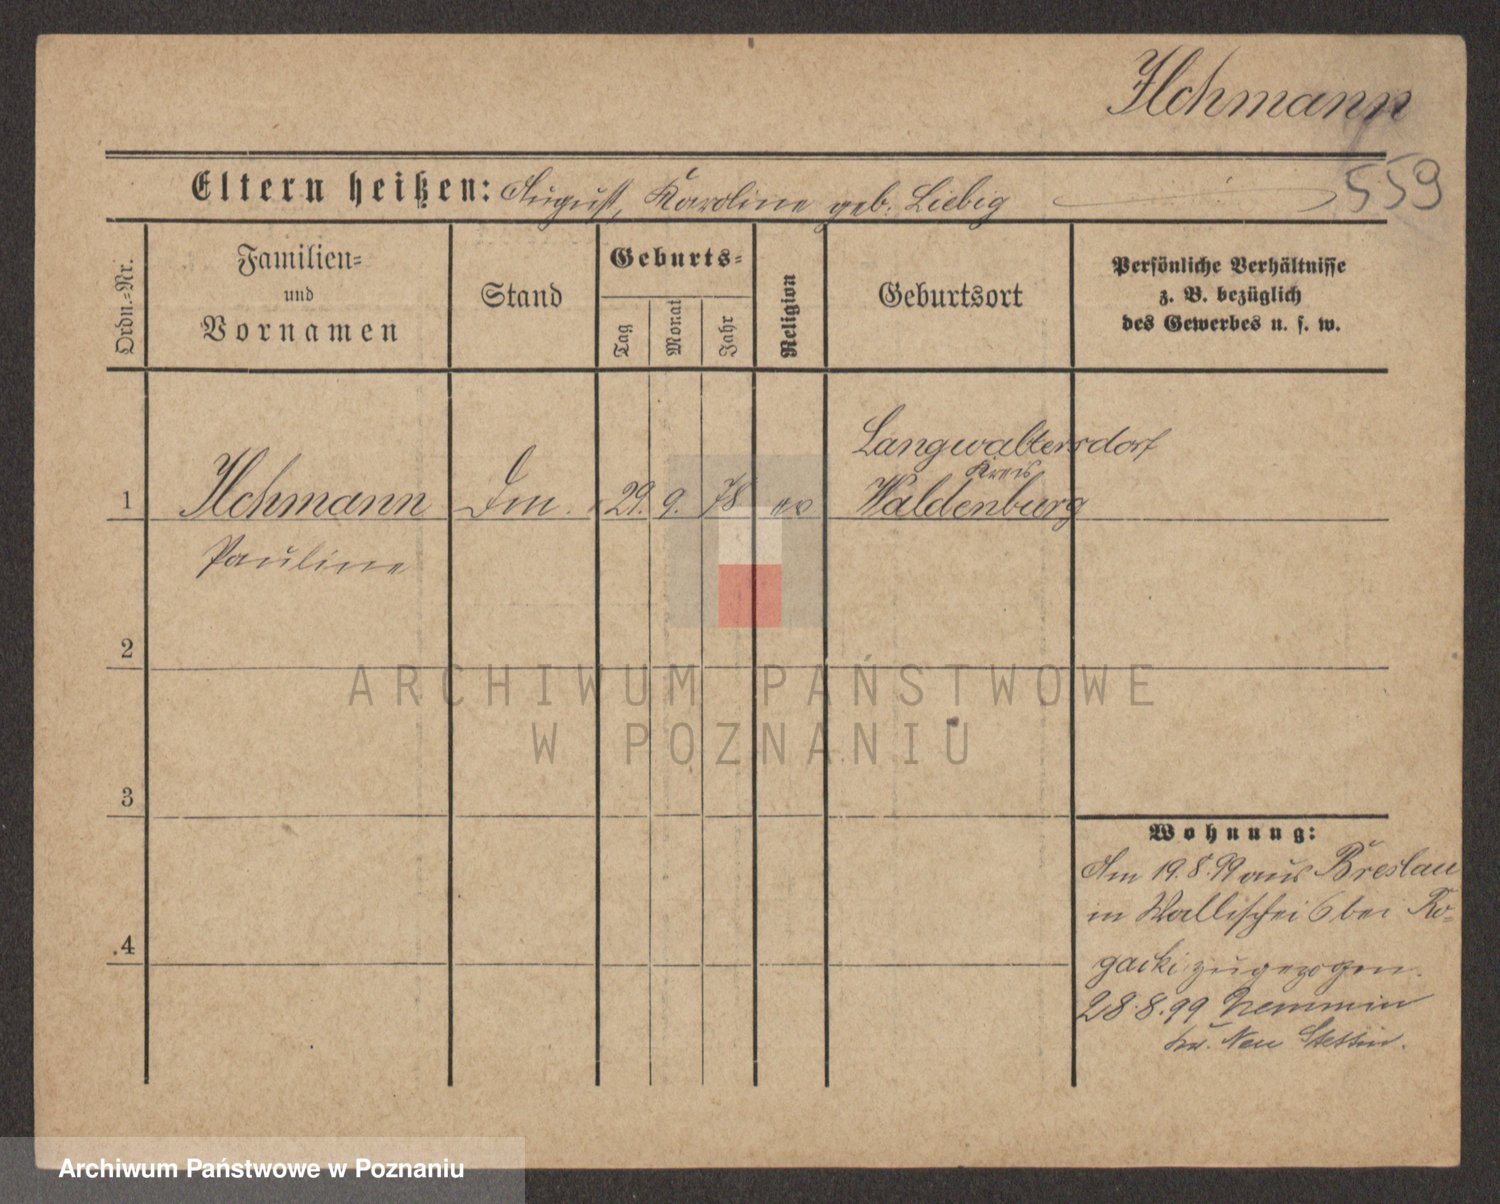 Ilchmann
559
Eltern heißen: August, Karoline geb. Liebig
Ordn.=Nr.
Familien=
und
Vornamen
Stand
Geburts=
Tag
Monat
Jahr
Religion
Geburtsort
Persönliche Verhältnisse
z. B. bezüglich
des Gewerbes u. s. w.
Langwaltersdorf
Kreis
1 Ilchmann 29. 9. 78 ev Waldenburg
Pauline
2
ARCHIWUM PAŃSTWOWE
W POZNANIU
3
Wohnung:
Am 19.8.99 aus Breslau
in Wallischei 6 bei Ro=
gacki zugezogen.
4
28.8.99
Kr. Neu Stettin.
Archiwum Państwowe w Poznaniu